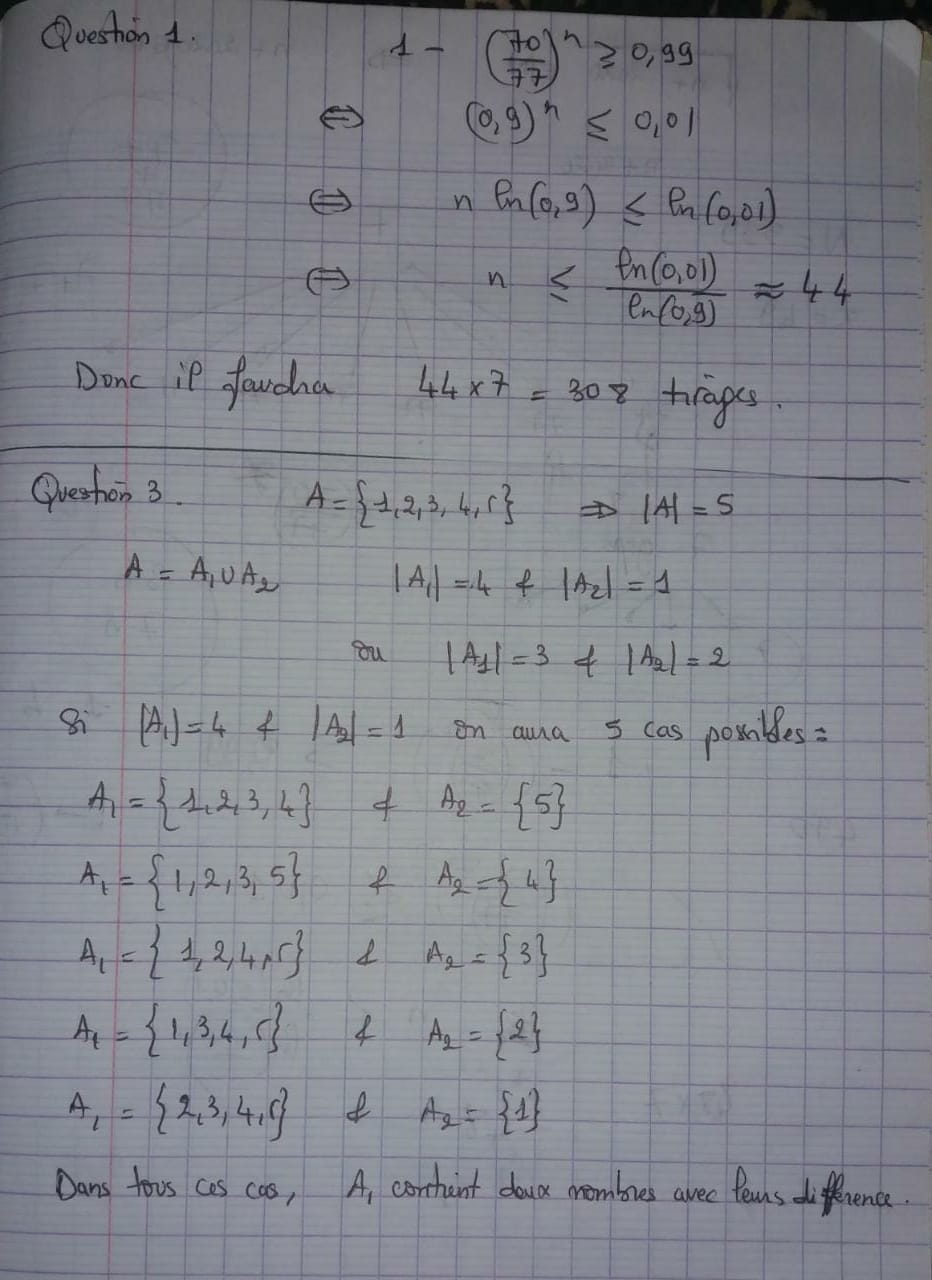 Question 1. 1 - (70/77)^n ≥ 0,99
⇔ (0,9)^n ≤ 0,01
⇔ n ln(0,9) ≤ ln(0,01)
⇔ n ≤ ln(0,01)/ln(0,9) ≈ 44
Donc il faudra 44 x 7 = 308 tirages.
Question 3. A = {1,2,3,4,5} ⇒ |A| = 5
A = A₁ ∪ A₂ |A₁| = 4 & |A₂| = 1
ou |A₁| = 3 & |A₂| = 2
Si |A₁| = 4 & |A₂| = 1 on aura 5 cas possibles =
A₁ = {1,2,3,4} & A₂ = {5}
A₁ = {1,2,3,5} & A₂ = {4}
A₁ = {1,2,4,5} & A₂ = {3}
A₁ = {1,3,4,5} & A₂ = {2}
A₁ = {2,3,4,5} & A₂ = {1}
Dans tous ces cas, A₁ contient deux nombres avec leurs différence.